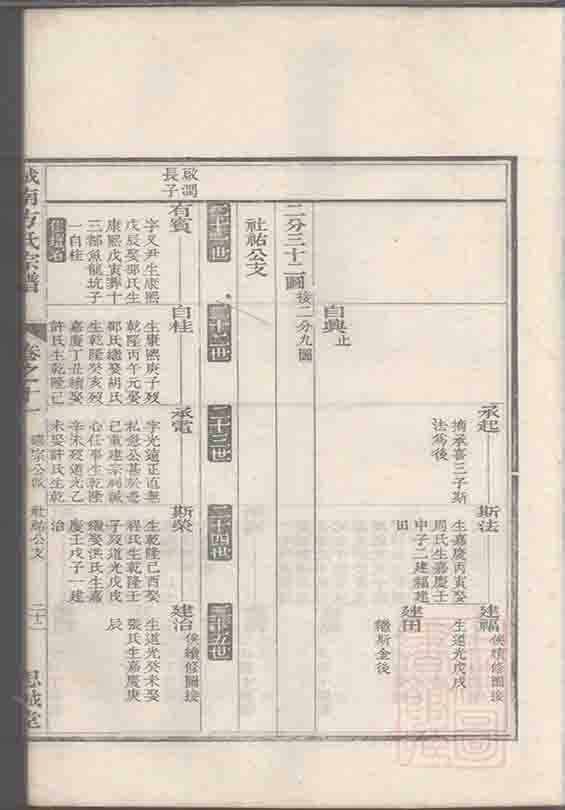 承起
摘承喜三子斯
法為後
斯法
生嘉慶丙寅娶
周氏生嘉慶壬
申子二建福建
田
建福
俟續修圖接
生道光戊戌
建田
繼斯金後
自興止
二分三十二圖接二分九圖
社祐公支
二十一世
二十二世
二十三世
二十四世
二十五世
啟潤
長子
有賓
字又尹生康熙
戊辰娶鄧氏生
康熙戊寅葬十
三都魚龍坑子
一自桂
自桂
生康熙庚子歿
乾隆丙午元娶
鄧氏繼娶胡氏
生乾隆癸亥歿
嘉慶丁丑續娶
許氏生乾隆己
承電
字光遠正直無
私急公甚於急
己重建宗祠誠
心任事生乾隆
辛未歿道光乙
未娶許氏生乾
斯榮
生乾隆己酉娶
程氏生乾隆壬
子歿道光戊戌
繼娶洪氏生嘉
慶壬戌子一建
治
建治
俟續修圖接
生道光癸未娶
張氏生嘉慶庚
辰
城南方氏宗譜
卷之十一
社祐公支
思誠堂